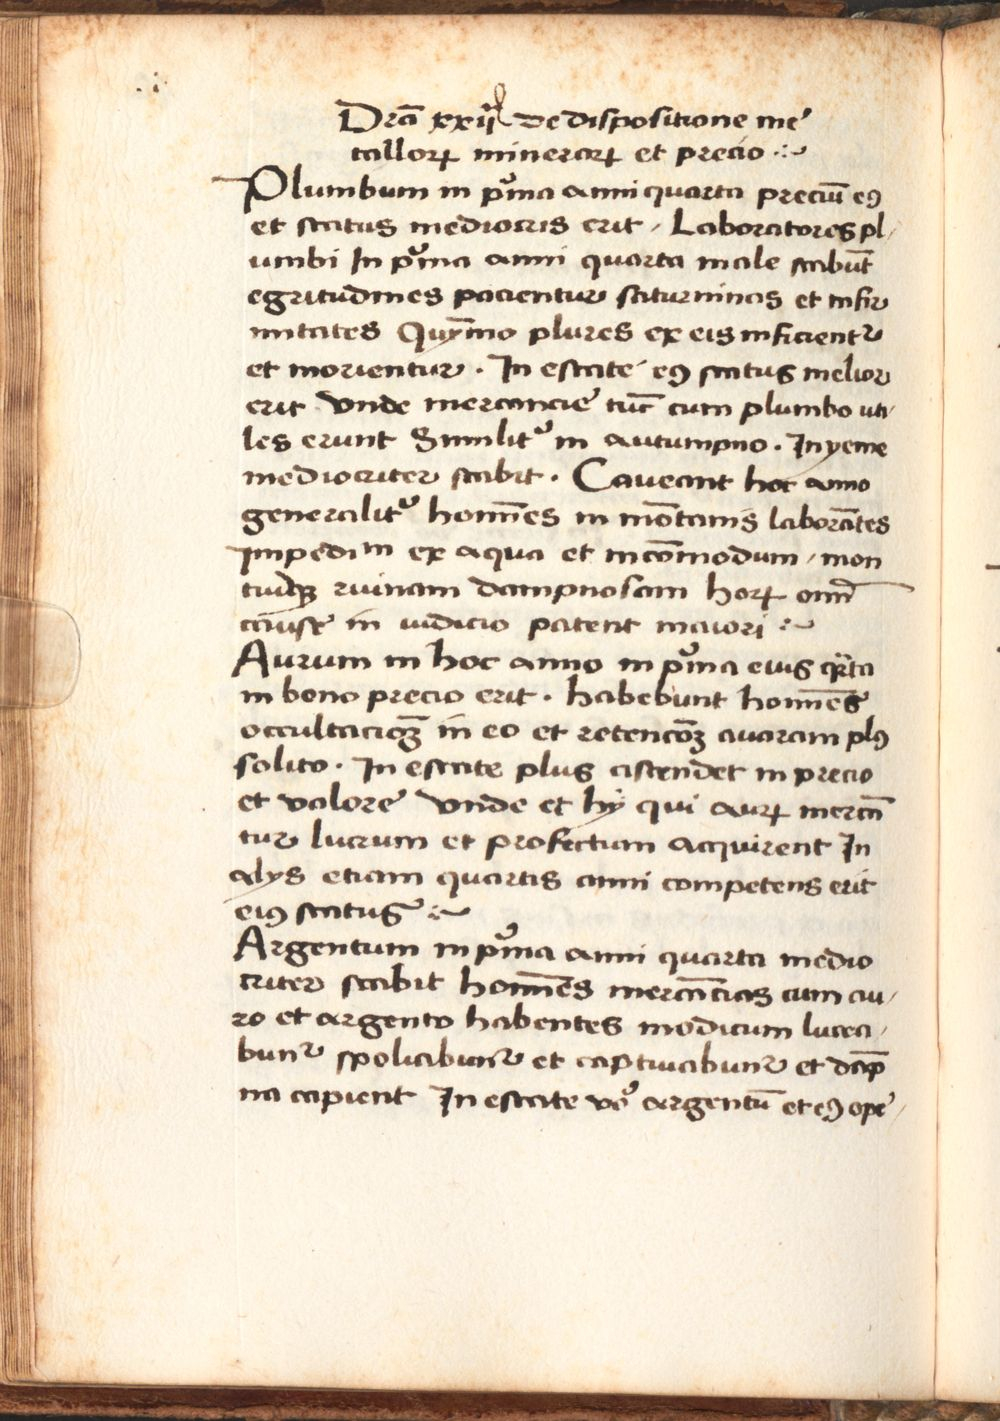 Dr̅a̅ xxij de dispositione me
tallorꝝ minerarꝝ et precio
Plumbum in pͦma anni quarta preciu̅ eꝰ
et status mediocris erit / Laboratores pl/
umbi In pͦma anni quarta male stabu̅t
egritudines pacientur saturninas et infir
mitates Quy̅mo plures ex eis inficientᷣ
et morientur · In estate eꝰ status melior
erit Vnde mercancie tu̅c cum plumbo uti/
les erunt Similitᷣ in autumpno · In yeme
mediocriter stabit · Caveant hoc anno
generalitᷣ homi̅es in mo̅tanis labora̅tes
Impedim ex aqua et inco̅modum / mon
tiu̅qꝫ ruinam dampnosam horꝝ
in iudicio patent maiori
Aurum in hoc anno in pͦma eius qᷓrta
in bono precio erit · habebunt homi̅es
occultacio̅ꝫ in eo et retenco̅ꝫ avaram plꝰ
solito · In estate plus ascendet in precio
et valore Vnde et hij qui aurꝝ merca̅
tur lucrum et profectum acquirent In
alys etiam quartis anni competens erit
eiꝰ status
Argentum in pͦma anni quarta medio
criter stabit homi̅es merca̅cias cum au/
ro et argento habentes modicum lucra/
bunᷣ spoliabunᷣ et captivabunᷣ et da̅p
na capient In estate vͦ argentu̅ et eꝰ ope/